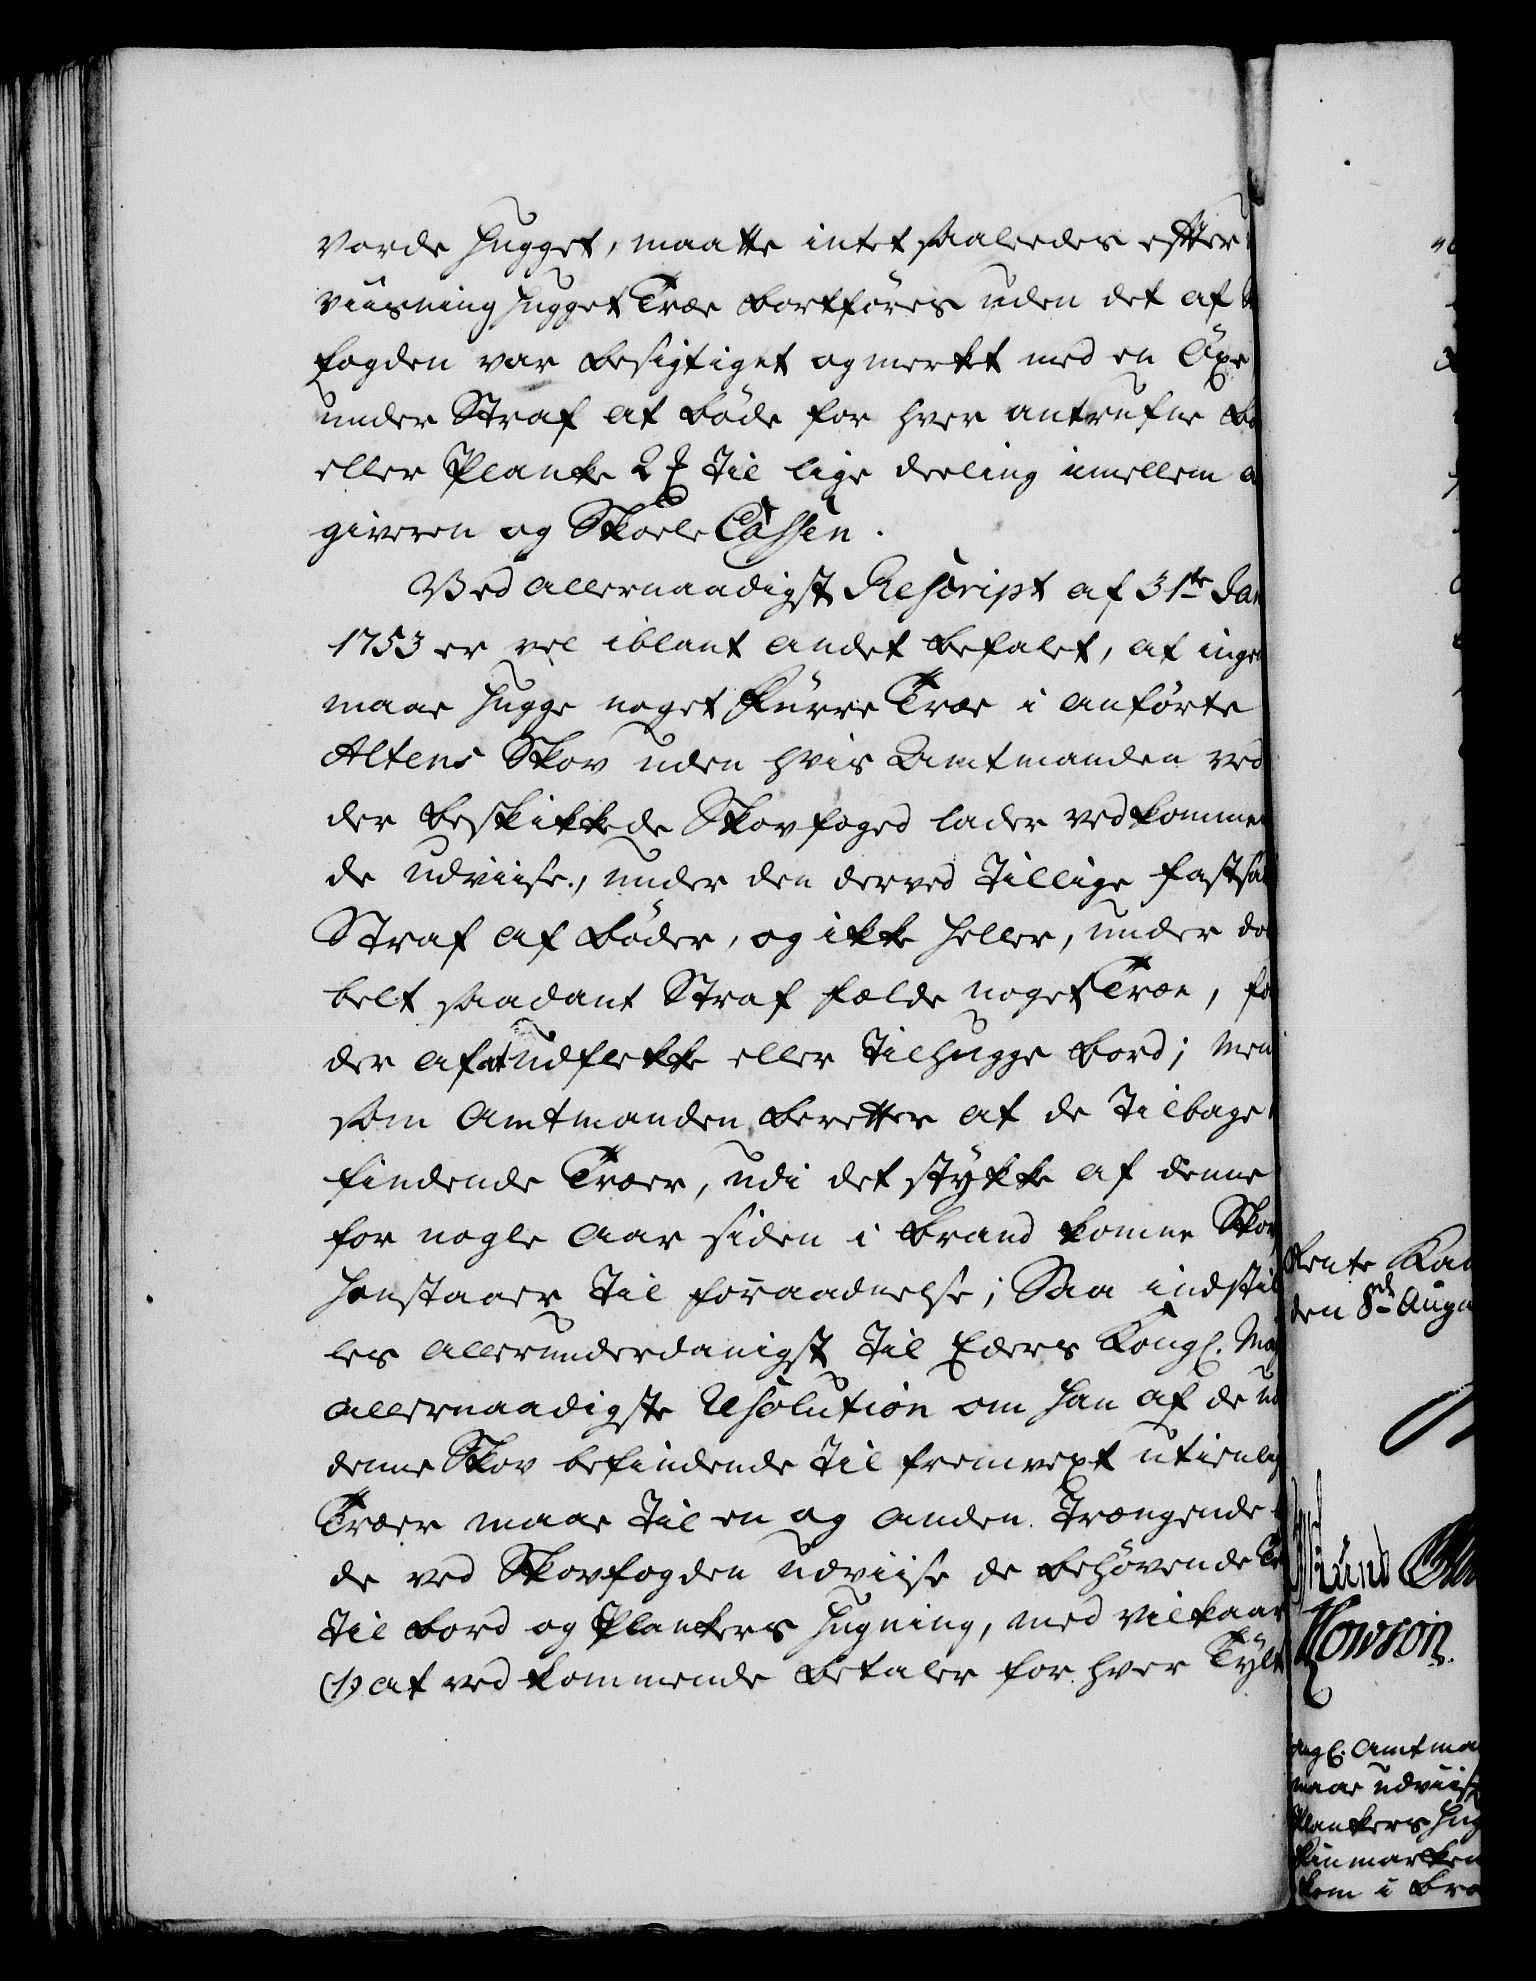 vorde hugget, maatte intet saaledes effter
viisning hugget Træe bortføres uden det af
fogden var besigtiget og merket med en Öxe
under Straf at bøde for hver antrufne
eller Planke 2 til lige deeling imellem
giveren og Skoele Cassen.
Ved allernaadigst Rescript af 31te Jan
1753 er vel iblant andet befalet, at ingen
maae hugge noget Fürre Træe i anførte
Altens Skov uden hvis Amtmanden ved
der beskikkede Skovfoged lader vedkommen
de udviise, under den derved tillige fastsat
Straf af Bøder, og ikke heller, under dob
belt saadant Straf fælde noget Træe, for
der af at udflekke eller tilhugge bord; Men
som Amtmanden beretter at de tilbage
findende Træer, udi det stykke af denne
for nogle Aar siden i brand komne Skov,
henstaaer til forraadnelse; Saa indstil
les allerunderdanigst til Eders Kongl. May
allernaadigste Resolution om han af de ud
denne Skov befindende til fremvext utienlig
Træer maae til en og anden trængende
de ved Skovfogden udviise de behøvende Tr
til bord og Plankers hugning, med vilkaar
(1) at vedkommende betaler for hver Tylt
Rente Kam
den 8de Augu
Howson.
ongl. Amtma
maae udviise
Plankers hug
Finmarken
kom i bra